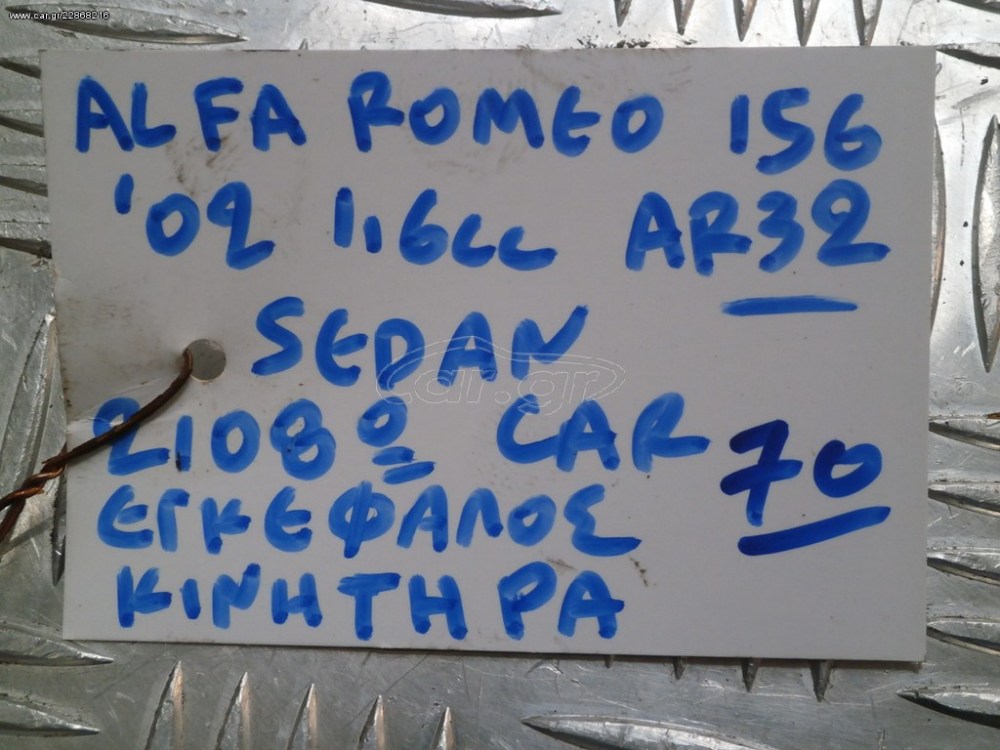 www.car.gr/22868216
ALFA ROMEO 156
'02 1,6cc AR32
SEDAN
car.gr
2108º CAR 70
ΕΓΚΕΦΑΛΟΣ
ΚΙΝΗΤΗΡΑ